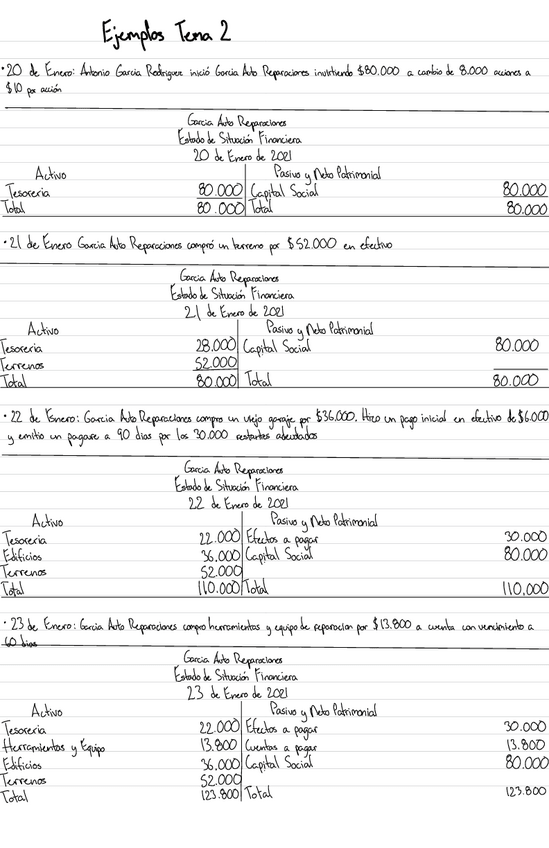 Ejemplos Tema 2
• 20 de Enero: Antonio Garcia Rodriguez inició Garcia Auto Reparaciones invirtiendo $80.000 a cambio de 8.000 acciones a
$10 por acción
Garcia Auto Reparaciones
Estado de Situación Financiera
20 de Enero de 2021
Activo Pasivo y Neto Patrimonial
Tesoreria 80.000 Capital Social 80.000
Total 80.000 Total 80.000
• 21 de Enero Garcia Auto Reparaciones compró un terreno por $52.000 en efectivo
Garcia Auto Reparaciones
Estado de Situación Financiera
21 de Enero de 2021
Activo Pasivo y Neto Patrimonial
Tesoreria 28.000 Capital Social 80.000
Terrenos 52.000
Total 80.000 Total 80.000
• 22 de Enero: Garcia Auto Reparaciones compro un viejo garaje por $36.000. Hizo un pago inicial en efectivo de $6.000
y emitio un pagare a 90 dias por los 30.000 restantes adeudados
Garcia Auto Reparaciones
Estado de Situación Financiera
22 de Enero de 2021
Activo Pasivo y Neto Patrimonial
Tesoreria 22.000 Efectos a pagar 30.000
Edificios 36.000 Capital Social 80.000
Terrenos 52.000
Total 110.000 Total 110.000
• 23 de Enero: Garcia Auto Reparaciones compro herramientas y equipo de reparacion por $13.800 a cuenta con vencimiento a
60 dias
Garcia Auto Reparaciones
Estado de Situación Financiera
23 de Enero de 2021
Activo Pasivo y Neto Patrimonial
Tesoreria 22.000 Efectos a pagar 30.000
Herramientas y Equipo 13.800 Cuentas a pagar 13.800
Edificios 36.000 Capital Social 80.000
Terrenos 52.000
Total 123.800 Total 123.800